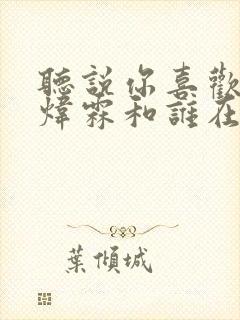 聽說你喜歡
煒霖和誰在
葉傾城